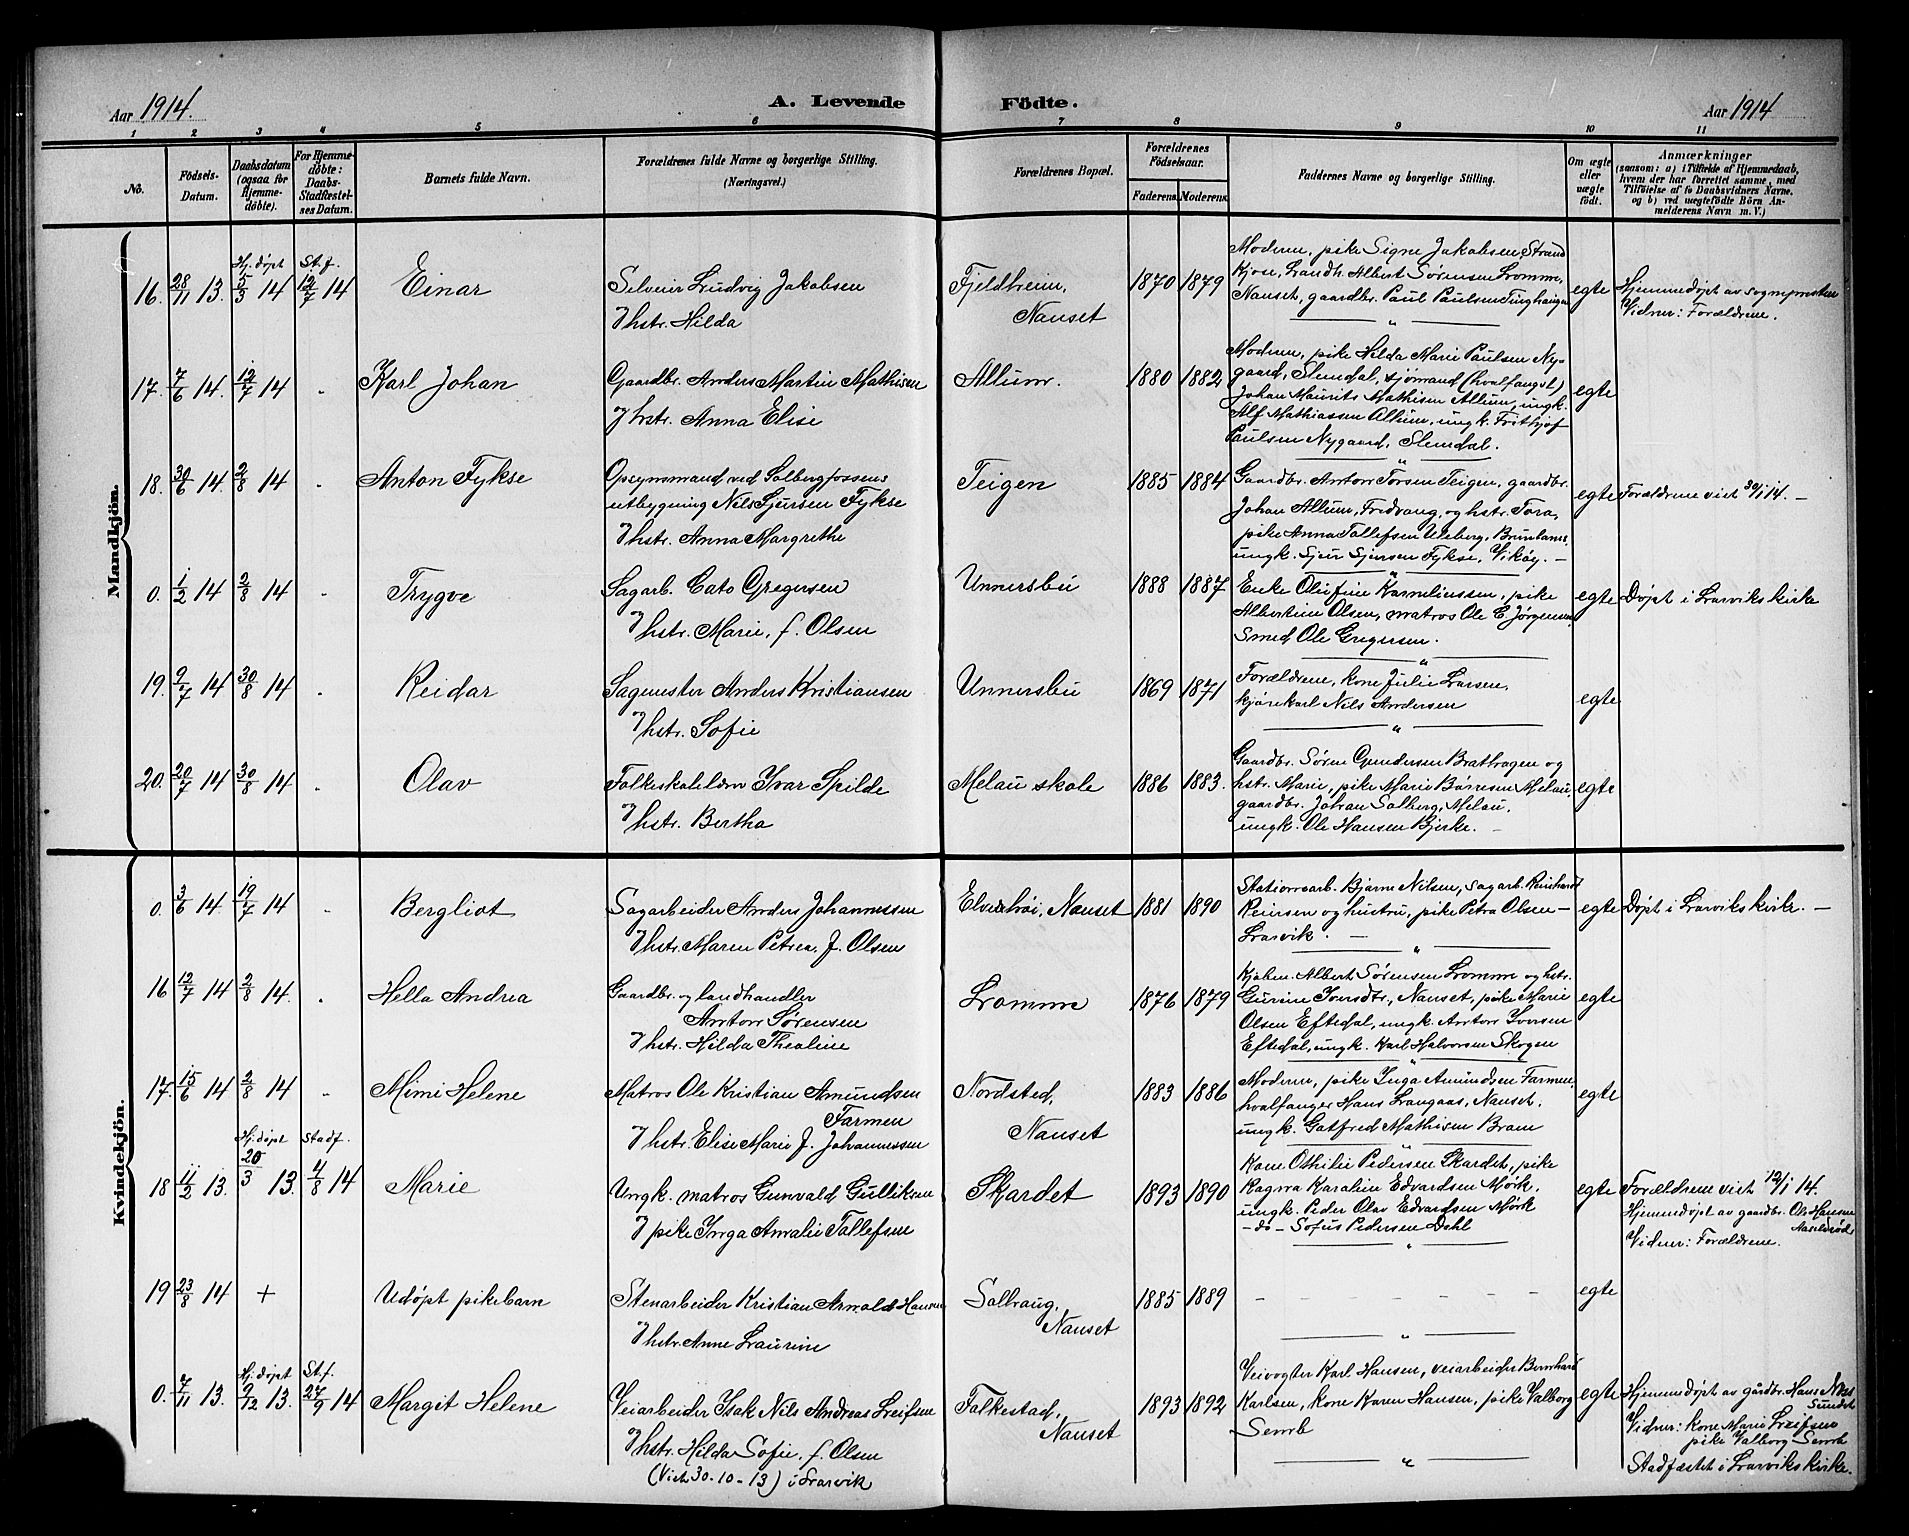 Aar 1914.
A. Levende Födte.
Aar 1914
1 2 3 4 5 6 7 8 9 10 11
No.
Födsels-
Datum.
Daabsdatum
(ogsaa for
Hjemme-
döbte).
For Hjemme-
döbte:
Daabs-
Stadfæstel-
ses Datum.
Barnets fulde Navn.
Forældrenes fulde Navne og borgerlige Stilling.
(Næringsvei.)
Forældrenes Bopæl.
Forældrenes
Födselsaar.
Faderens. Moderens.
Faddernes Navne og borgerlige Stilling.
Om ægte
eller
uægte
födt.
Anmærkninger
(saasom: a) i Tilfælde af Hjemmedaab,
hvem der har forrettet samme, med
Tilföielse af to Daabsvidners Navne,
og b) ved uægtefödte Börn An-
melderens Navn m. V.)
Mandkjön.
Hj.døpt St.f.
16. 28/11 13. 5/3 14 12/7 14 Einar
Jakobsen
Ihstr. Hilda
Fjeldheim,
Nauset
1870 1879
Moderen, pike Signe Jakobsen Strand
Kjose, Landh. Albert Sørensen Lomme,
Nauset, gaardbr. Paul Paulsen
egte
Hjemmedøpt av sogneprest
Vidner: Forældrene.
17. 7/6 14. 12/7 14 Karl Johan
Gaardbr. Anders Martin Mathisen
og hstr. Anna Elise
Allum.
1880 1882
Moderen, pike Hilda Marie Paulsen Ny-
gaard, Slemdal, sjømand (hvalfangst)
Johan Maurits Mathisen Allum, ungk.
Alf Mathiassen Allum, ungk. Frithjof
Paulsen Nygaard, Slemdal.
egte
18. 30/6 14. 2/8 14 Anton Fykse
Opsynsmand ved Solbergfossens
utbygning Nils Sjursen Fykse
Ihstr. Anna Margrethe
Teigen
1885 1884
Gaardbr. Anton Torsen Teigen, gaardbr.
Johan Allum, Fredvang, og hstr. Tora,
pike Anna Tollefsen Uleberg, Brunlanes,
ungk. Sjur Sjursen Fykse, Vikøy. –
egte
Forældrene viet 30/1 14. –
0. 1/2 14 2/8 14 Trygve
Sagarb. Cato Gregersen
og hstr. Marie, f. Olsen
Unnersbu
1888 1887
Enke Olefine Korneliussen, pike
Albertine Olsen, matros Ole C. Jørgensen
Smed Ole Gregersen.
egte
Døpt i Larviks kirke
19. 9/7 14 30/8 14 Reidar
Sagmester Anders Kristiansen
og hstr. Sofie
Unnersbu
1869 1871
Forældrene, kone Julie Larsen,
kjørekarl Nils Andersen
egte
20. 20/7 14 30/8 14 Olav
Folkeskolelærer Ivar Spilde
Ihstr. Bertha
Melau skole
1886 1883.
Gaardbr. Søren Gundersen Brathagen og
hstr. Marie, pike Marie Børresen Melau,
gaardbr. Johan Solberg, Melau.
ungk. Ole Hansen Bjerke. –
egte
Kvindekjön.
0. 3/6 14 19/7 14 Bergliot
Sagarbeider Anders Johannessen
Ihstr. Maren Petrea, f. Olsen
Elvehøi, Nauset
1881 1890
Stationsarb. Bjarne Nilsen, sagarb. Reinhardt
Reiersen og hustru, pike Petra Olsen –
Larvik. –
egte
Døpt i Larviks kirke. –
16 12/7 14 2/8 14. Hella Andrea
Gaardbr. og landhandler
Anton Sørensen
Ihstr. Hilda Thealine
Lomme
1876 1879
Kjøbm. Albert Sørensen Lomme og hstr.
Gurine Iversdtr, Nauset, pike Marie
Olsen Eftedal, ungk. Anton Iversen
Eftedal, ungk. Karl Halvorsen Skogen
egte
17. 15/6 14 2/8 14 Mimi Helene
Matros Ole Kristian Amundsen
Farmen
Ihstr. Elise Marie f. Johannessen
Nordsted,
Nauset
1883 1886
Moderen, pike Inga Amundsen Farmen,
hvalfanger Hans Langaas, Nauset.
ungk. Gotfred Mathisen Bram
egte
Hj.døpt Stadf.
18 11/2 13. 20/3 13. 4/8 14 Marie
Ungk. matros Gunvald Gulliksen
I pike Inga Amalie Tollefsen
Skardet
1893 1890
Kone Othilie Pedersen Skardet, pike
Ragna Karoline Edvardsen Mørk,
ungk. Peder Olav Edvardsen Mørk
– do – Sofus Pedersen Dahl
egte
Forældrene viet 12/1 14.
Hjemmedøpt av gaardbr. Ole Hansen
Vidner: Forældrene.
19 23/8 14 + Udøpt pikebarn
Stenarbeider Kristian Arnold Hansen
Ihstr. Anne Laurine
Solhaug,
Nauset
1885 1889
– – – – – –
egte
Hj.døpt St.f.
0. 7/11 13. 9/12 13. 27/9 14 Margit Helene
Veiarbeider Isak Nils Andreas Leifsen
Ihstr. Hilda Sofie, f. Olsen
(Viet 30-10-13) i Larvik
Falkestad,
Nauset
1893 1892
Veivogter Karl Hansen, veiarbeider Bernhard
Karlsen, kone Karen Hansen, pike Valborg
Semb
egte
Hjemmedøpt av gårdbr. Hans Næs
Sundet
Vidner: Kone Marie Leifsen
pike Valborg Semb
Stadfæstet i Larviks kirke.